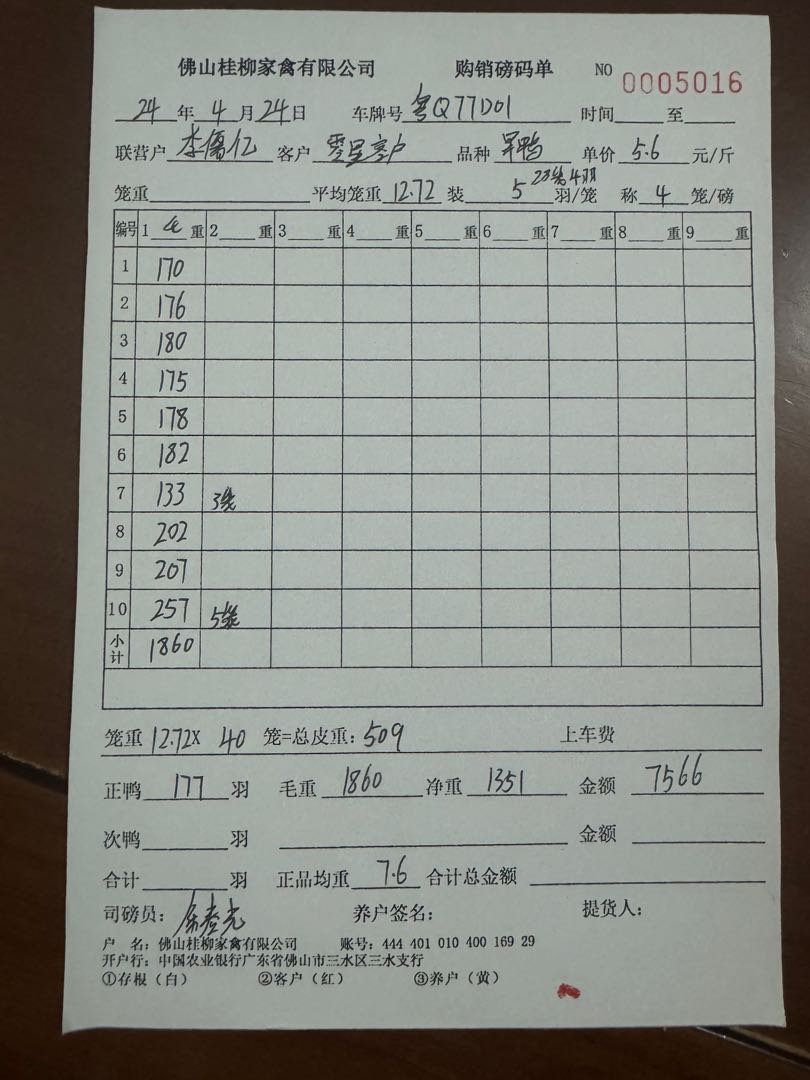 佛山桂柳家禽有限公司 购销磅码单 NO 0005016
24 年 4 月 24 日 车牌号 粤Q77D01 时间 至
联营户 李儒亿 客户 零星客户 品种 旱鸭 单价 5.6 元/斤
23笼4羽
笼重 平均笼重 12.72 装 5 羽/笼 称 4 笼/磅
编号 1 仝 重 2 重 3 重 4 重 5 重 6 重 7 重 8 重 9 重
1 170
2 176
3 180
4 175
5 178
6 182
7 133 3笼
8 202
9 207
10 257 5笼
小计 1860
笼重 12.72X 40 笼=总皮重: 509 上车费
正鸭 177 羽 毛重 1860 净重 1351 金额 7566
次鸭 羽 金额
合计 羽 正品均重 7.6 合计总金额
司磅员: 养户签名: 提货人:
户 名: 佛山桂柳家禽有限公司 账号: 444 401 010 400 169 29
开户行: 中国农业银行广东省佛山市三水区三水支行
①存根(白) ②客户(红) ③养户(黄)